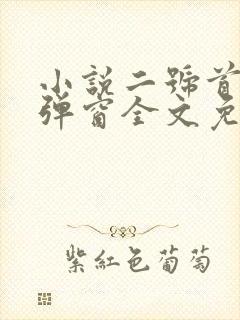 小説二號首
彈窗全文免
紫紅色葡萄